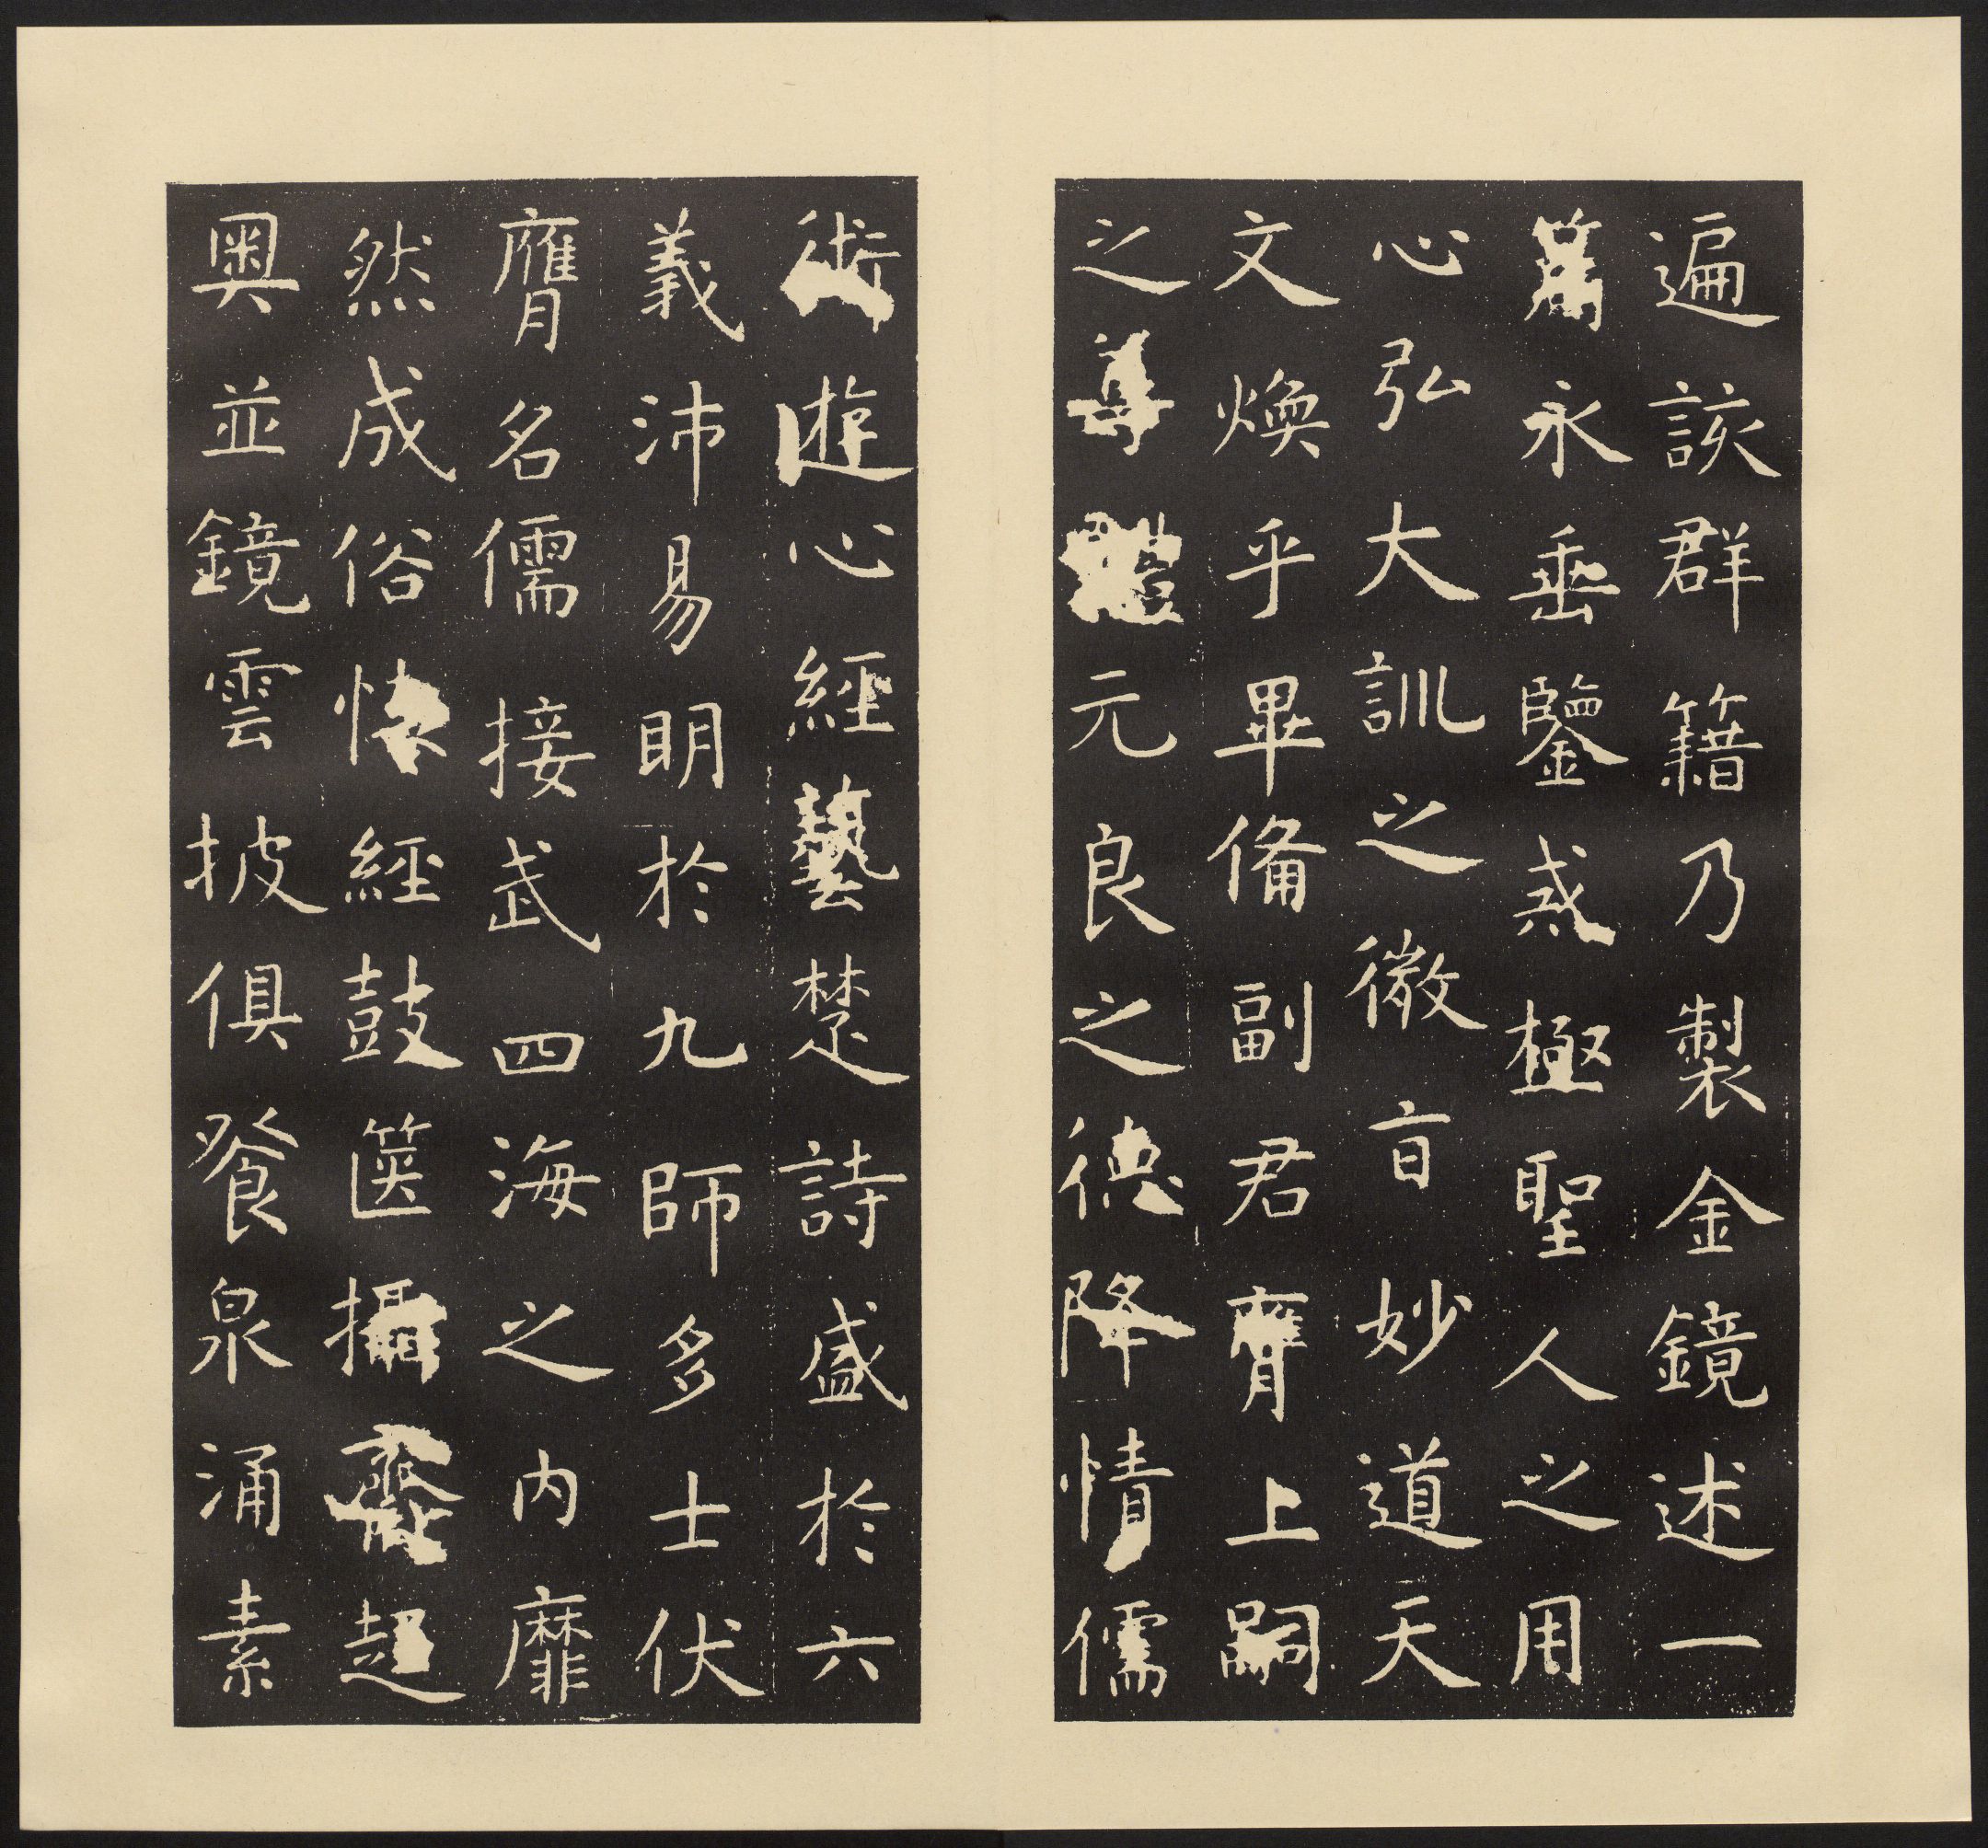 遍該群籍乃製金鏡述一
篇永垂鑒戒極聖人之用
心弘大訓之微旨妙道天
文煥乎畢備副君膺上嗣
之尊體元良之德降情儒
術遊心經藝楚詩盛於六
義沛易明於九師多士伏
膺名儒接武四海之內靡
然成俗懷經鼓篋攝齊趨
奧並鏡雲披俱餐泉涌素